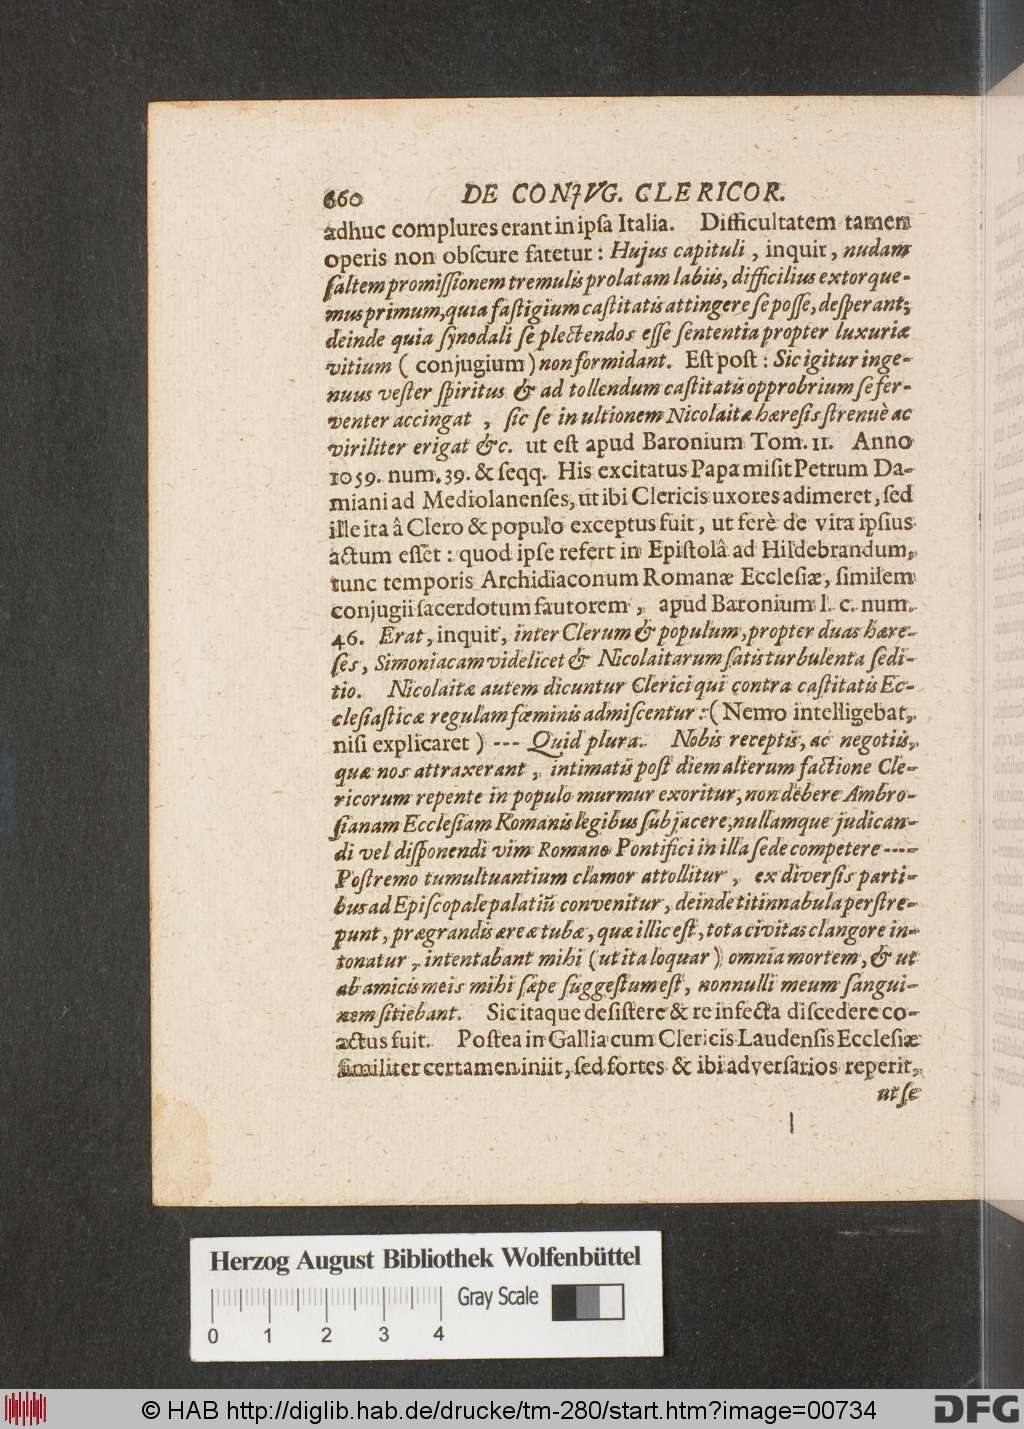 660 DE CONJVG. CLERICOR.
adhuc complures erant in ipſa Italia. Difficultatem tamen
operis non obſcure fatetur: Hujus capituli, inquit, nudam
ſaltem promiſſionem tremulis prolatam labiis, difficilius extorque-
mus primum, quia faſtigium caſtitatis attingere ſe poſſe, deſperant;
deinde quia ſynodali ſe plectendos eſſe ſententia propter luxuriæ
vitium ( conjugium ) non formidant. Eſt poſt: Sic igitur inge-
nuus veſter ſpiritus & ad tollendum caſtitatis opprobrium ſe fer-
venter accingat , ſic ſe in ultionem Nicolaitæ hæreſis ſtrenuè ac
viriliter erigat &c. ut eſt apud Baronium Tom. 11. Anno
1059. num. 39. & ſeqq. His excitatus Papa miſit Petrum Da-
miani ad Mediolanenſes, ut ibi Clericis uxores adimeret, ſed
ille ita â Clero & populo exceptus fuit, ut ferè de vita ipſius
actum eſſet: quod ipſe refert in Epiſtolâ ad Hildebrandum,
tunc temporis Archidiaconum Romanæ Eccleſiæ, ſimilem
conjugii ſacerdotum fautorem, apud Baronium l. c. num.
46. Erat, inquit, inter Clerum & populum, propter duas hære-
ſes, Simoniacam videlicet & Nicolaitarum ſatis turbulenta ſedi-
tio. Nicolaitæ autem dicuntur Clerici qui contra caſtitatis Ec-
cleſiaſticæ regulam fœminis admiſcentur: (Nemo intelligebat,
niſi explicaret) --- Quid plura. Nobis receptis, ac negotiis,
quæ nos attraxerant, intimatis poſt diem alterum factione Cle-
ricorum repente in populo murmur exoritur, non debere Ambro-
ſianam Eccleſiam Romanis legibus ſubjacere, nullamque judican-
di vel diſponendi vim Romano Pontifici in illa ſede competere ----
Poſtremo tumultuantium clamor attollitur, ex diverſis parti-
bus ad Epiſcopale palatiũ convenitur, deinde titinnabula perſtre-
punt, prægrandis æreæ tubæ, quæ illic eſt, tota civitas clangore in-
tonatur, intentabant mihi (ut ita loquar) omnia mortem, & ut
ab amicis meis mihi ſæpe ſuggeſtum eſt, nonnulli meum ſangui-
nem ſitiebant. Sic itaque deſiſtere & re infecta diſcedere co-
actus fuit. Poſtea in Gallia cum Clericis Laudenſis Eccleſiæ
ſimiliter certamen iniit, ſed fortes & ibi adverſarios reperit,
ut ſe
Herzog August Bibliothek Wolfenbüttel
Gray Scale
0 1 2 3 4
© HAB http://diglib.hab.de/drucke/tm-280/start.htm?image=00734
DFG